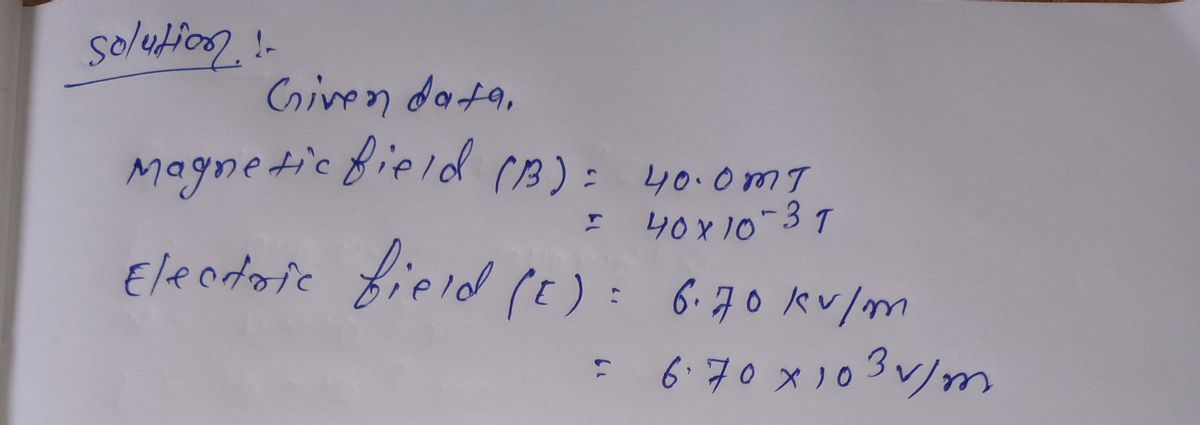 Solution :-
Given data.
Magnetic field (B) = 40.0mT
= 40x10-3 T
Electric field (E) = 6.70 kv/m
= 6.70 x103 v/m